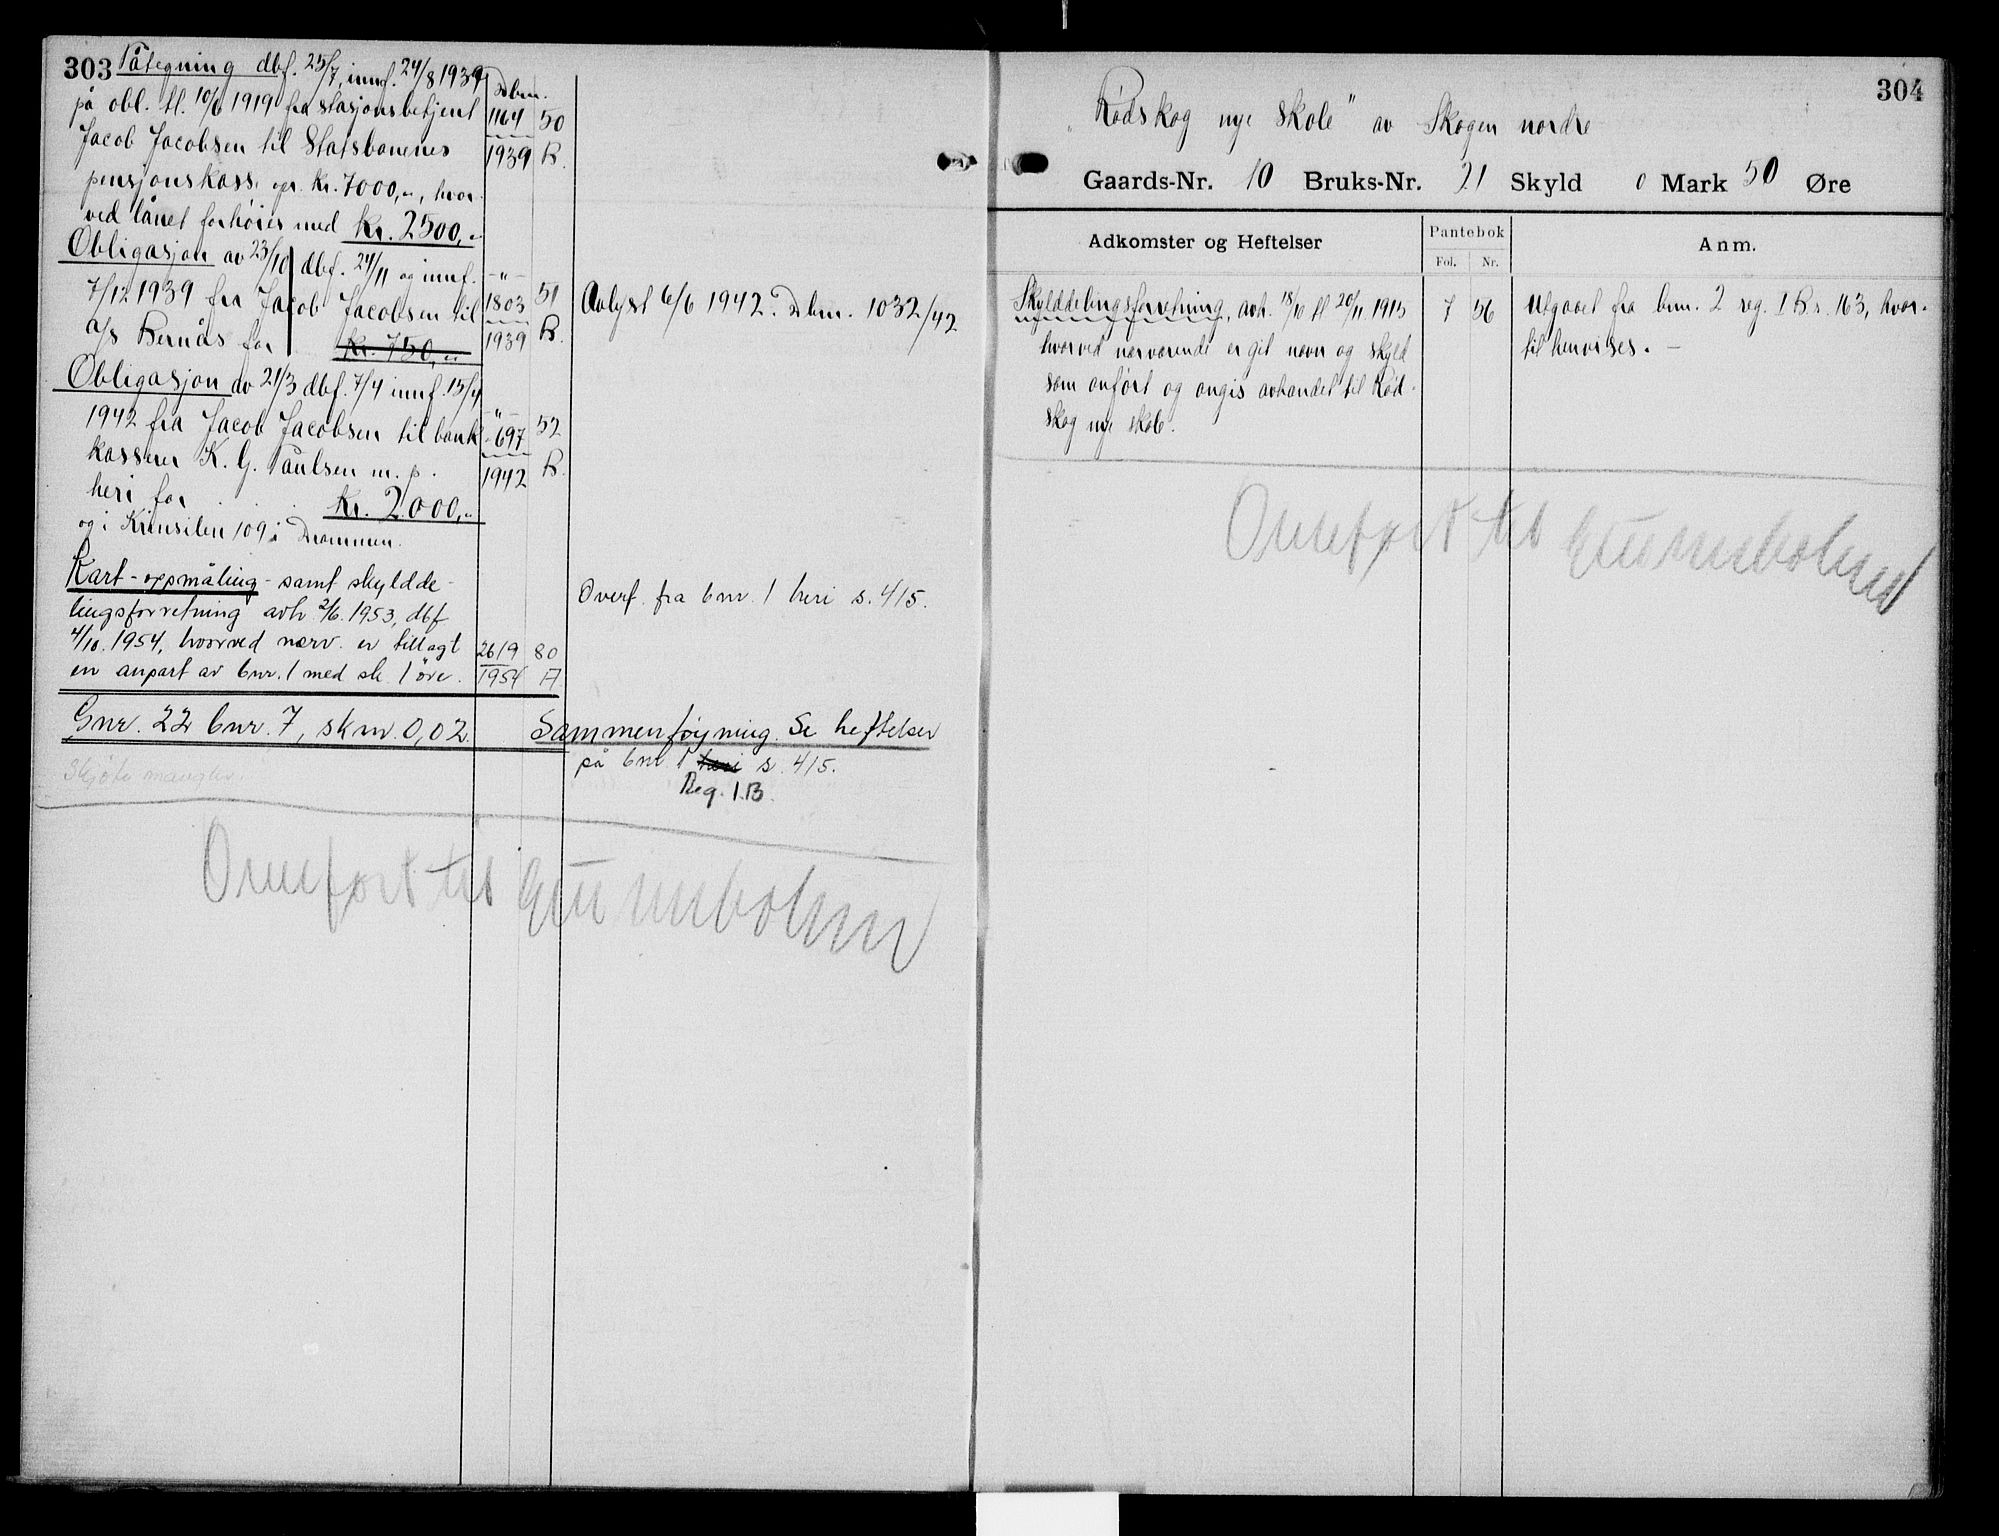 303 Påtegning dbf. 25/7, innf. 24/8 1939
på obl. tl. 10/6 1919 fra stasjonsbetjent
Jacob Jacobsen til Statsbanenes
pensjonskasse opr. kr. 7000,-, hvor-
ved lånet forhøies med kr. 2500,-
Dbnr.
1164 50
1939 B.
Obligasjon av 23/10 dbf. 24/11 og innf.
7/12 1939 fra Jacob Jacobsen til
a/s Bernås for kr. 750,-
-"-
1803 51
1939 B.
Avlyst 6/6 1942. Dbnr. 1032/42
Obligasjon av 21/3 dbf. 7/4 innf. 15/4
1942 fra Jacob Jacobsen til bank
kasserer K. G. Paulsen m. p.
heri for kr. 2000,-
og i 109 i Drammen.
-"-
697 52
1942 B.
Kart-oppmåling- samt skyldde-
lingsforretning avh. 2/6. 1953, dbf
4/10. 1954, hvorved nærv. er tillagt
en anpart av bnr. 1 med sk. 1 øre.
2619 80
1954 A.
Overf. fra bnr. 1 heri s. 415.
Gnr. 22 bnr. 7, skm. 0,02.
Sammenføyning. Se heftelser
på bnr. 1 heri s. 415.
Reg. I.B.
Skjøte mangler.
Overført til
304
"Rødskog nye skole" av Skogen nordre
Gaards-Nr. 10 Bruks-Nr. 21 Skyld 0 Mark 50 Øre
Adkomster og Heftelser
Pantebok
Fol. Nr.
Anm.
Skylddelingsforretning, avh. 18/10 tl 20/11 1915
hvorved nærværende er git navn og skyld
som anført og angis avhændet til Rød-
skog nye skole.
7 56
Utgaaet fra bnr. 2 reg. I B s. 163, hvor-
til henvises. -
Overført til